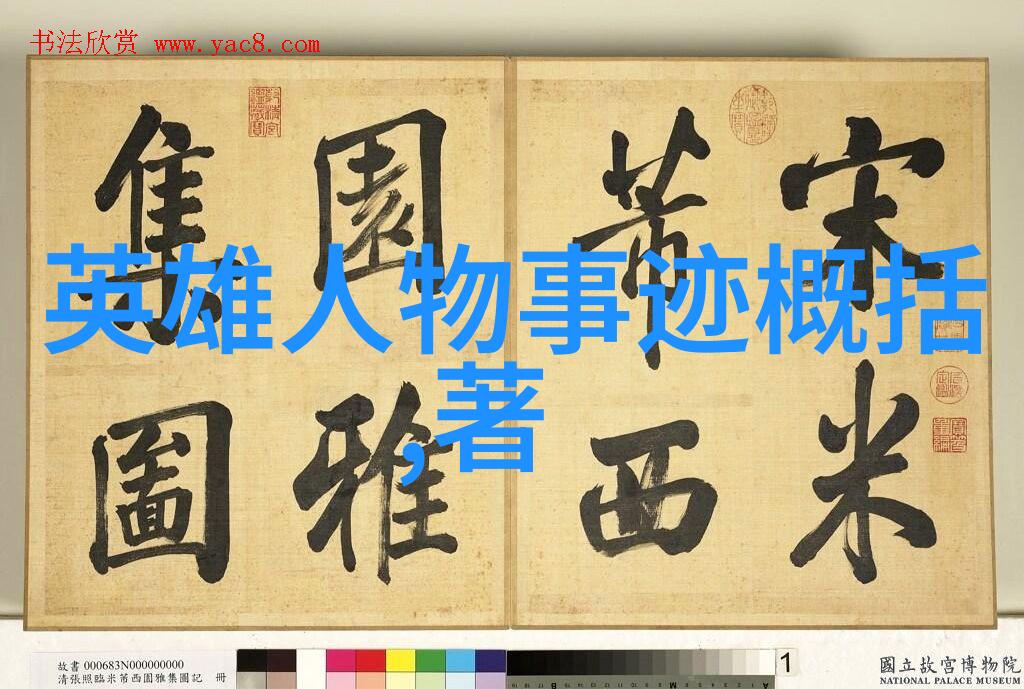 书法欣赏 www.yac8.com
宋米
芾西
園雅
集圖
英雄人物事迹概括
,著
故書 000683N000000000
清張照臨米芾西園雅集圖記 冊
1
國立故宮博物院
NATIONAL PALACE MUSEUM